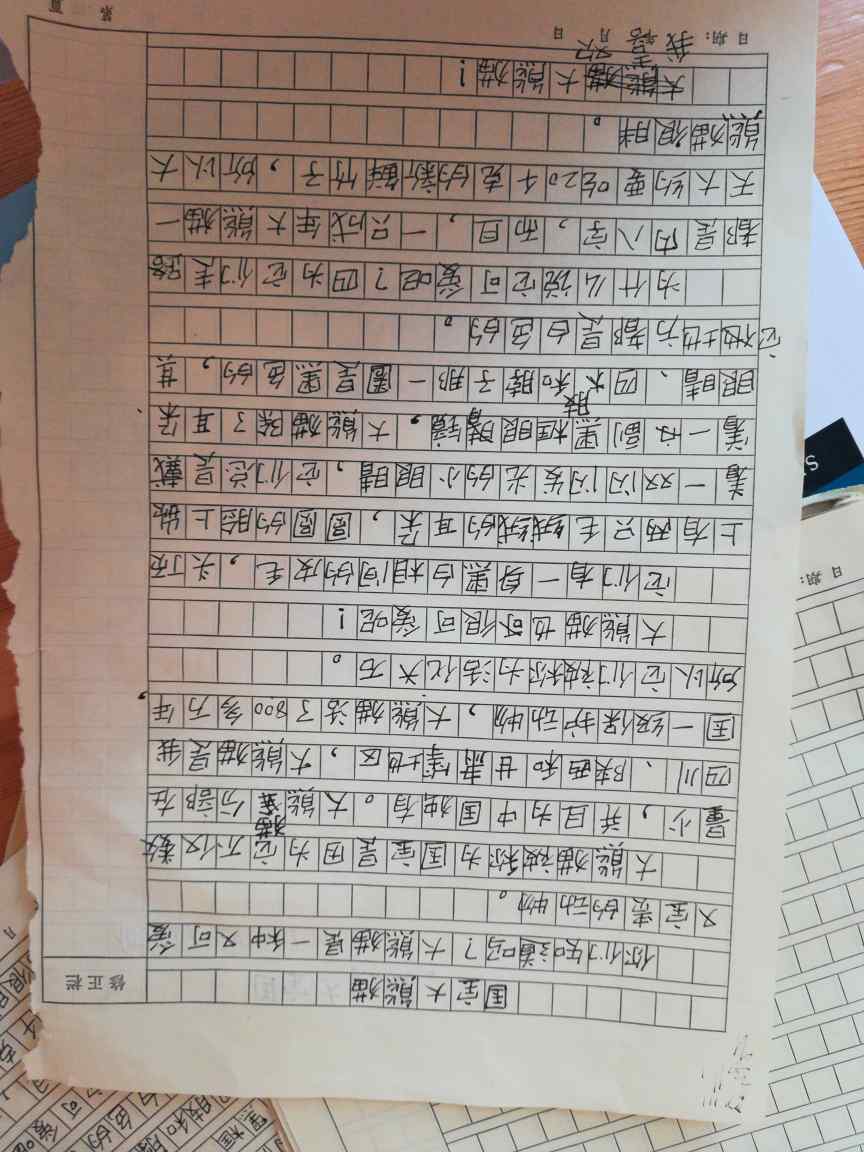 国宝大熊猫
修正栏
你们知道吗？大熊猫是一种又可爱
又宝贵的动物。
大熊猫被称为国宝是因为它不仅数
量少，并且为中国独有。大熊猫分部在
四川、陕西和甘肃等地区，大熊猫是我
国一级保护动物，大熊猫活了800多万年，
所以它们被称为活化石。
大熊猫也很可爱呢！
它们有一身黑白相间的皮毛，头顶
上有两只毛绒绒的耳朵，圆圆的脸上嵌
着一双闪闪发光的小眼睛，它们总是戴
着一副黑框眼睛镜，大熊猫除了耳朵、
眼睛、四肢和脖子那一圈是黑色的，其
它他地方都是白色的。
为什么说它可爱呢？因为它们走路
都是内八字，而且，一只成年大熊猫一
天大约要吃20千克的新鲜竹子，所以大
熊猫很胖。
我喜欢
大熊猫！
日期： 月 日
第 页
日期：